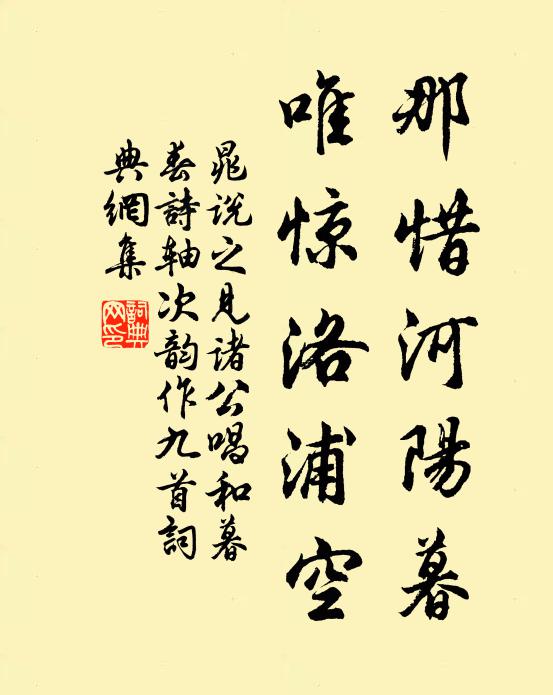 那惜河陽暮
唯惊洛浦空
晁说之見诸公唱和暮
春詩轴次韵作九首詞
典網集
詞典
网印